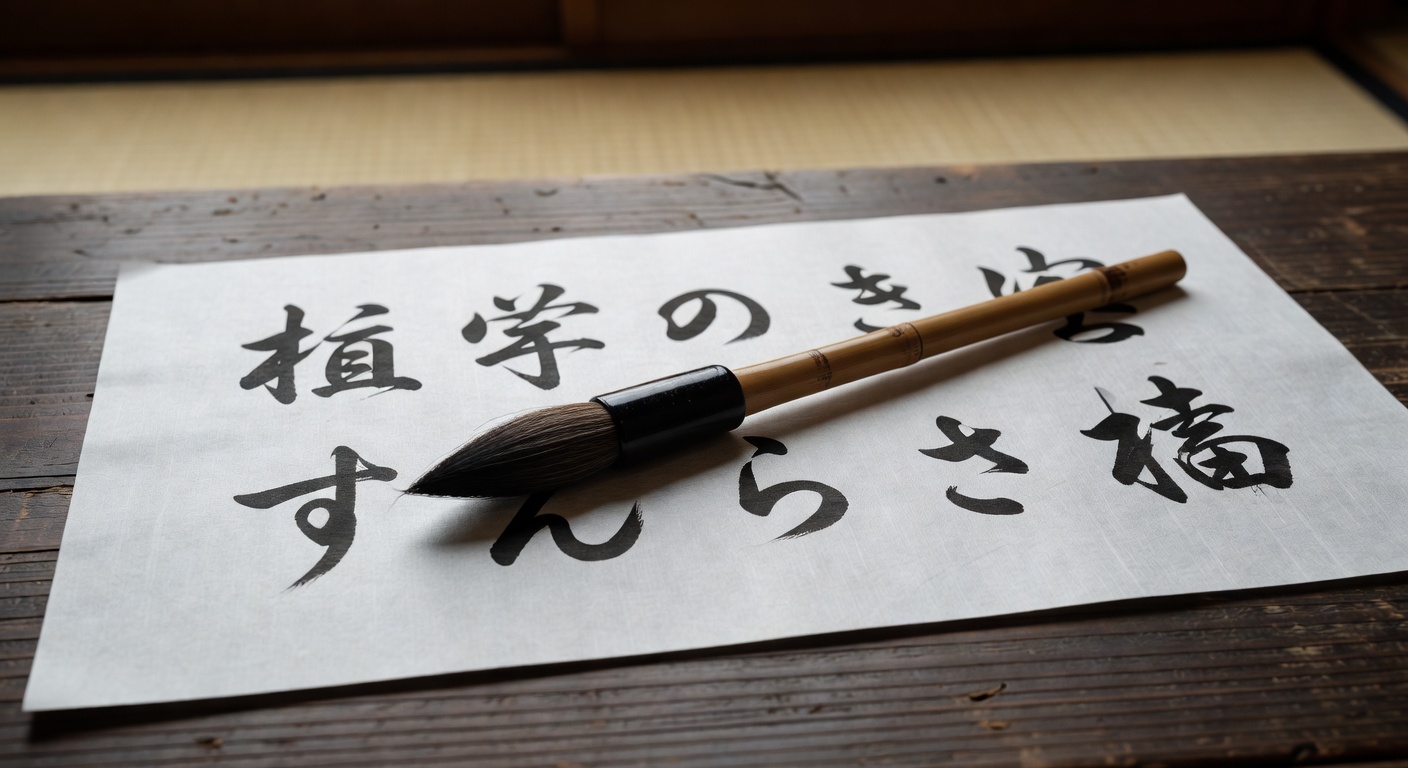 植学のき
すんらさ